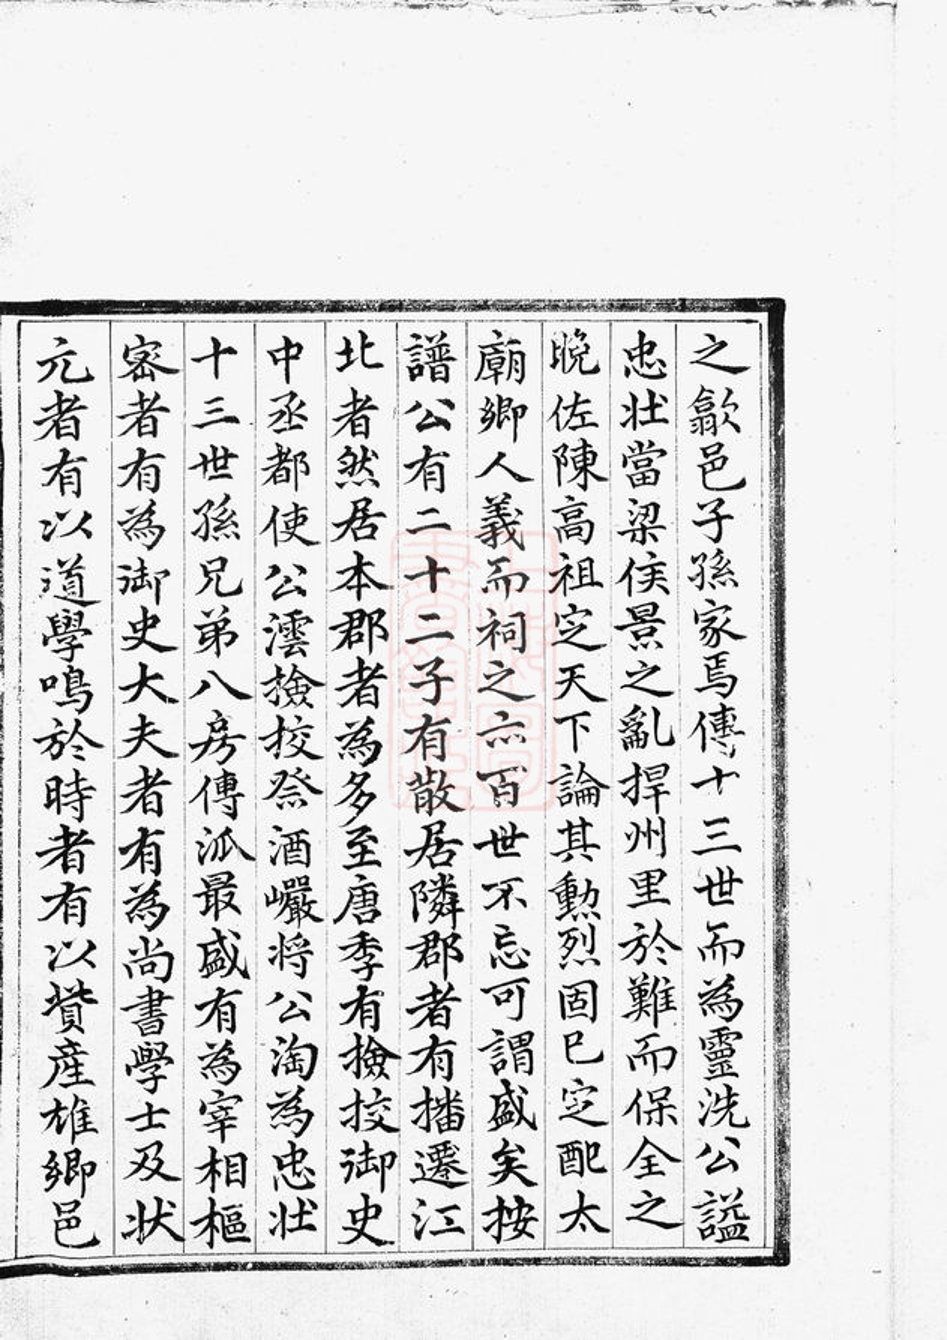 之歙邑子孫家焉傳十三世而為靈洗公謚
忠壯當梁侯景之亂捍州里於難而保全之
晚佐陳高祖定天下論其勲烈固已定配太
廟鄉人義而祠之亦百世不忘可謂盛矣按
譜公有二十二子有散居隣郡者有播遷江
北者然居本郡者為多至唐季有撿挍御史
中丞都使公澐撿挍祭酒巗將公淘為忠壯
十三世孫兄弟八房傳派最盛有為宰相樞
密者有為御史大夫者有為尚書學士及状
元者有以道學鳴於時者有以貲産雄鄉邑